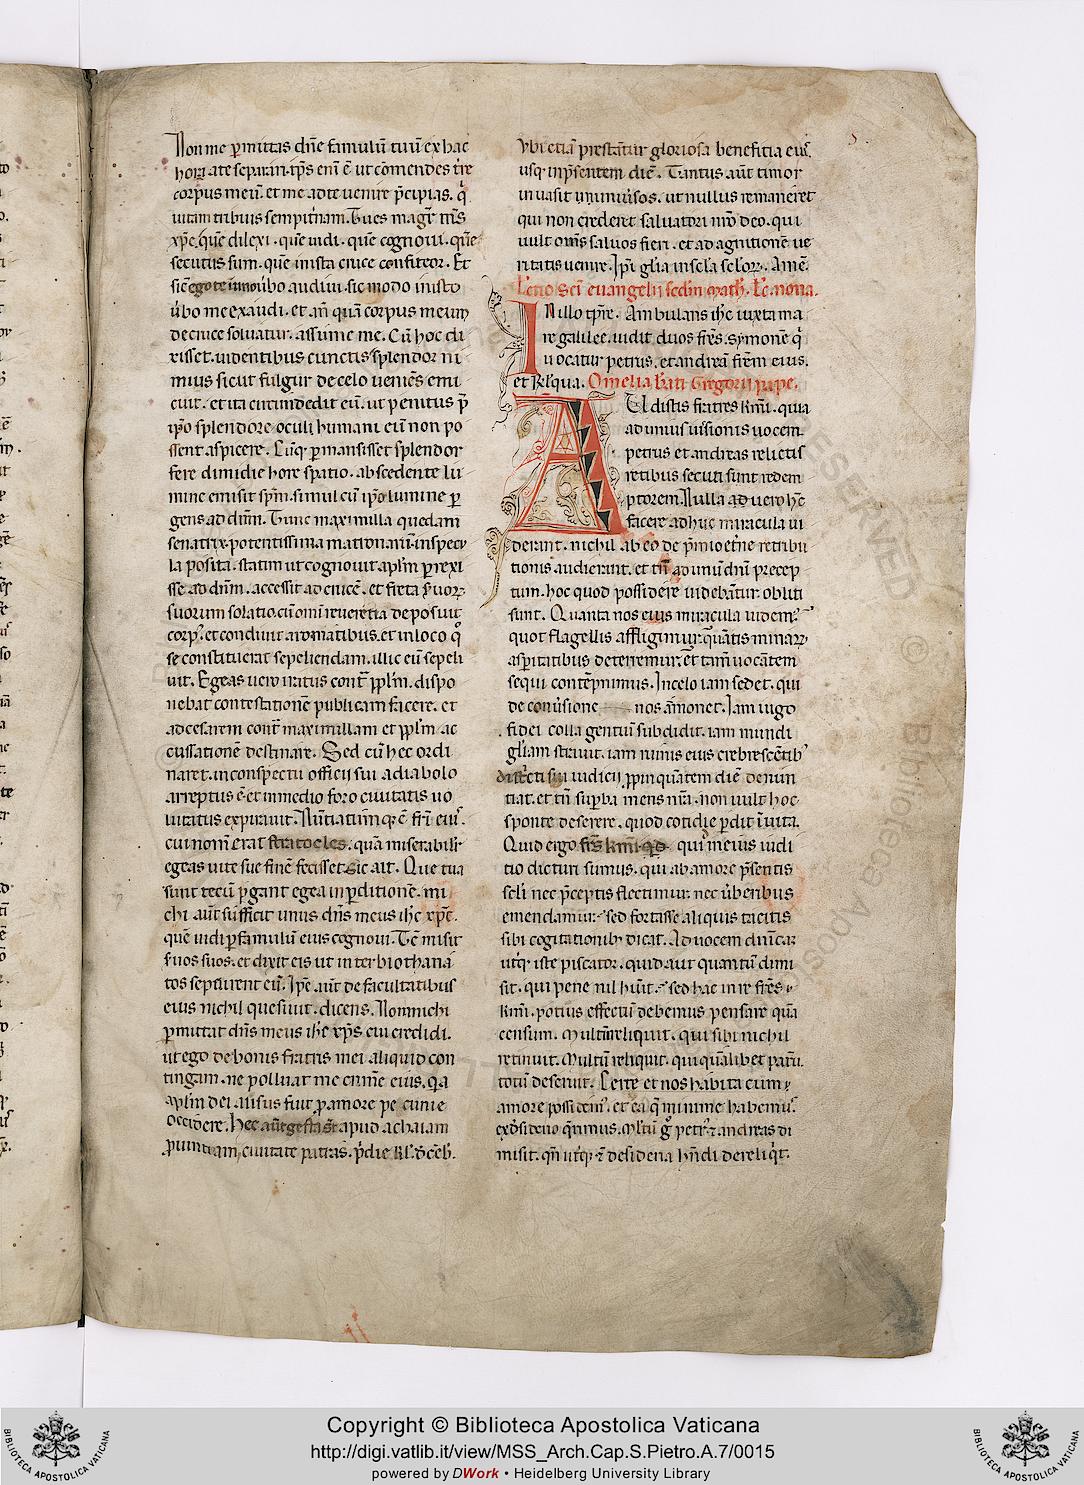 Non me ꝑmittas dn̄e famulū tuū ex hac
hora a te separari. tp̄s enī ē ut cōmendes tr̄re
corpus meū. et me ad te venire p̄cipias. qͥ
uitam tribuis sempit̄nam. Tu es magr̄ m̄s
xp̄c. quē dilexi. quē uidi. quē cognoui. quē
secutus sum. quē in ista cruce confiteor. Et
sic ego te in uo ūbo audiui. sic modo in isto
ūbo me exaudi. et an̄ quā corpus meum
de cruce soluatur. assume me. Cū hoc di
xisset. uidentibus cunctis splendor ni
mius sicut fulgur de celo ueniēs emi
cuit. et ita circumdedit eū. ut penitus p̄
ip̄o splendore oculi humani eū non po
ssent aspicere. Cūq; ꝑmansisset splendor
fere dimidie hore spatio. abscedente lu
mine emisit sp̄m. simul cū ip̄o lumine ꝑ
gens ad dn̄m. Tunc maximilla quedam
senatrix. potentissima matronarū inspecu
la posita. statim ut cognouit ap̄lm ꝑrexi
sse ad dn̄m. accessit ad crucē. et freta s̄uorꝝ
suorum solatio. cū omī reuerētia deposuit
corpꝰ. et condiuit aromatibus. et in loco qͦ
se constituerat sepeliendam. illic eū sepeli
uit. Egeas uero iratus cont͛ pp̄lm. dispo
nebat contestationē publicam facere. et
ad cesarem cont͛ maximillam et pp̄lm ac
cussationē destinare. Sed cū hec ordi
naret. in conspectu officij sui a diabolo
arreptus ē. et in medio foro ciuitatis uo
lutatus expirauit. Nūtiatūmq; ē fr̄i eiꝰ.
cui nom̄ erat stratocles. quā miserabilr̄
egeas uite sue finē fecisset. Sic ait. Que tua
sunt tecū ꝑgant egea in ꝑditionē. mi
chi aūt sufficit unus dn̄s meus ih̄c xp̄c.
quē uidi ꝑ famulū eius cognoui. Tc̄ misit
s̄uos suos. et dixit eis ut inter biothana
tos sepelirent eū. Ip̄e aūt de facultatibus
eius nichil quesiuit. dicens. Non michi
ꝑmittat dn̄s meus ih̄c xp̄s cui credidi.
ut ego de bonis fratris mei aliquid con
tingam. ne polluat me crimē eius. q̇a
ap̄lm dei ausus fuit ꝓ amore pecunie
occidere. Hec aūt gesta st̄ apud achaiam
ꝓuintiam ciuitate patras. p̄die kl̄. dec̄eb̄.
Vbi etiā prestantur gloriosa benefitia eiꝰ.
usq; in p̄sentem diē. Tantus aūt timor
inuasit uniuersos. ut nullus remaneret
qui non crederet saluatori nr̄o deo. qui
uult om̄s saluos fieri. et ad agnitionē ue
ritatis uenire. Ip̄i gl̄ia in scl̄a scl̄orꝝ. Amē.
Lectio sci̅ euangelij scd̄m math̄. Lc̄. nona.
In illo tp̄re. Ambulans ih̄c iuxta ma
re galilee. uidit duos fr̄es. symonē qͥ
uocatur petrus. et andreā fr̄em eius.
et Rl̄iqua. Omelia bt̄i Gregorii pape.
AUdistis fratres kmī. quia
ad unius iussionis uocem
petrus et andreas relictis
retibus secuti sunt redem
ptorem. Nulla ad uero h̄c
facere adhuc miracula ui
derant. nichil ab eo de p̄mio et̄ne retribu
tionis audierunt. et tn̄ ad unū dn̄i precep
tum. hoc quod possidere uidebātur. obliti
sunt. Quanta nos eius miracula uidemꝰ.
quot flagellis affligimur. quātis minarꝝ
asꝑitatibus deterremur. et tam̄ uocātem
sequi contēpnimus. In celo iam sedet. qui
de conūsione nos āmonet. Iam iugo
fidei colla gentiū subdidit. iam mundi
gl̄iam strauit. iam ruinis eius crebrescētibꝰ
districti sui iudicij ꝓpinquātem diē denun
tiat. et tn̄ suꝑba mens nr̄a. non uult hoc
sponte deserere. quod cotidie ꝑdit īuita.
Quid ergo fr̄s kmī. qd̄ qui in eius iudi
tio dicturi sumus. qui ab amore p̄sentis
scl̄i nec p̄ceptis flectimur. nec ūberibus
emendamur. sed fortasse aliquis tacitis
sibi cogitationib; dicat. Ad uocem dn̄icā
utͥq; iste piscator. quid aut quantū dimi
sit. qui pene nil hūit. sed hac in re fr̄es
kmī. potius effectū debemus pensare quā
censum. Multū reliquit. qui sibi nichil
retinuit. Multū reliquit. qui quālibet parū.
totū deseruit. Certe et nos habita cum
amore possidemꝰ. et ea q̄ minime habemꝰ.
ex dēsiderio q̄rimus. Multū gͦ petrꝰ et andreas di
misit. qn̄ utͥq; et desideria hn̄di dereliqͥt.
Copyright © Biblioteca Apostolica Vaticana
http://digi.vatlib.it/view/MSS_Arch.Cap.S.Pietro.A.7/0015
powered by DWork • Heidelberg University Library
BIBLIOTECA APOSTOLICA VATICANA
BIBLIOTECA APOSTOLICA VATICANA